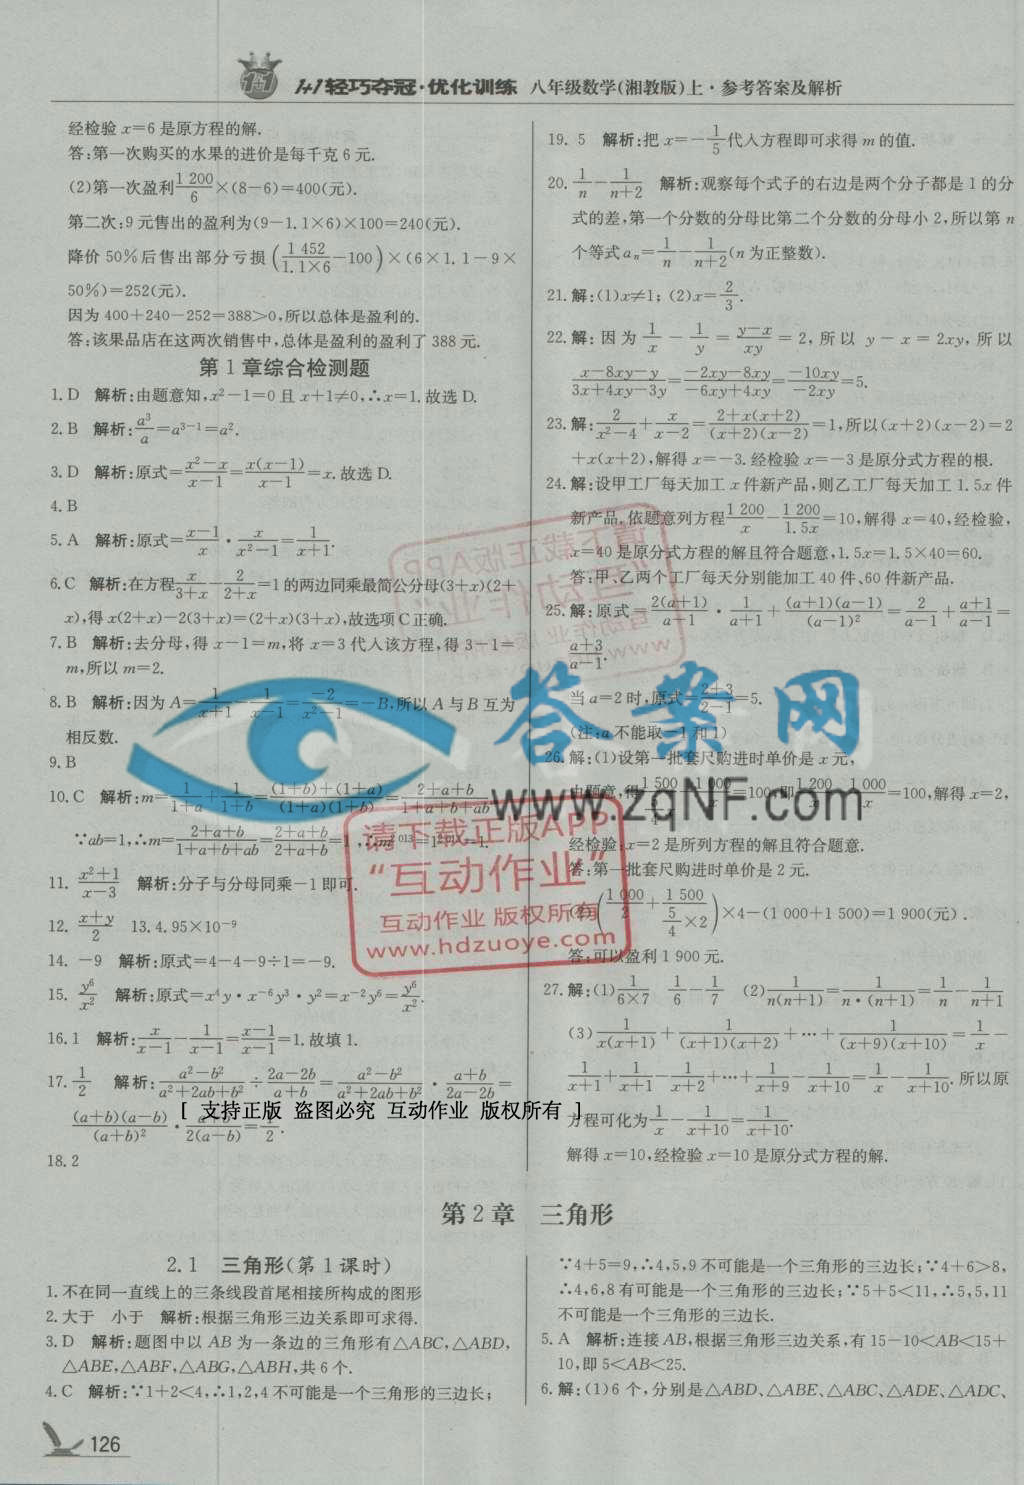 1+1轻巧夺冠·优化训练 八年级数学(湘教版)上·参考答案及解析
经检验 x=6 是原方程的解.
答:第一次购买的水果的进价是每千克 6 元.
(2)第一次盈利 1 200/6 ×(8-6)=400(元).
第二次:9 元售出的盈利为(9-1.1×6)×100=240(元).
降价 50%后售出部分亏损 (1 452/1.1×6 -100)×(6×1.1-9×
50%)=252(元).
因为 400+240-252=388>0,所以总体是盈利的.
答:该果品店在这两次销售中,总体是盈利的盈利了 388 元.
第 1 章综合检测题
1. D 解析:由题意知,x²-1=0 且 x+1≠0,∴x=1.故选 D.
2. B 解析:a³/a=a³⁻¹=a².
3. D 解析:原式=(x²-x)/(x-1)=x(x-1)/(x-1)=x.故选 D.
4. B
5. A 解析:原式=(x-1)/x · x/(x²-1)=1/(x+1).
6. C 解析:在方程 x/(3+x) - 2/(2+x)=1 的两边同乘最简公分母(3+x)(2+
x),得 x(2+x)-2(3+x)=(2+x)(3+x),故选项 C 正确.
7. B 解析:去分母,得 x-1=m,将 x=3 代入该方程,得 3-1=
m,所以 m=2.
8. B 解析:因为 A=1/(x+1) - 1/(x-1)=-2/(x²-1)=-B,所以 A 与 B 互为
相反数.
9. B
10. C 解析:m=1/(1+a)+1/(1+b)=((1+b)+(1+a))/((1+a)(1+b))=(2+a+b)/(1+a+b+ab)
∵ab=1,∴m=(2+a+b)/(1+a+b+ab)=(2+a+b)/(2+a+b)=1,∴m²⁰¹³=1²⁰¹³=1.
11. (x²+1)/(x-3) 解析:分子与分母同乘-1 即可.
12. (x+y)/2 13. 4.95×10⁻⁹
14. -9 解析:原式=4-4-9÷1=-9.
15. y⁶/x² 解析:原式=x⁴y·x⁻⁶y³·y²=x⁻²y⁶=y⁶/x².
16. 1 解析:x/(x-1) - 1/(x-1)=(x-1)/(x-1)=1.故填 1.
17. 1/2 解析:(a²-b²)/(a²+2ab+b²)÷(2a-2b)/(a+b)=(a²-b²)/(a²+2ab+b²)·(a+b)/(2a-2b)=
(a+b)(a-b)/(a+b)²·(a+b)/2(a-b)=1/2.
18. 2
19. 5 解析:把 x=-1/5 代入方程即可求得 m 的值.
20. 1/n - 1/(n+2) 解析:观察每个式子的右边是两个分子都是 1 的分
式的差,第一个分数的分母比第二个分数的分母小 2,所以第 n
个等式 aₙ=1/n - 1/(n+2)(n 为正整数).
21. 解:(1)x≠1; (2)x=2/3.
22. 解:因为 1/x - 1/y=(y-x)/xy=2,所以 y-x=2xy,所以
(x-8xy-y)/(3x+4xy-3y)=(-2xy-8xy)/(-6xy+4xy)=-10xy/-2xy=5.
23. 解:2/(x²-4)+x/(x-2)=(2+x(x+2))/((x+2)(x-2))=1,所以(x+2)(x-2)=2
+x(x+2),解得 x=-3.经检验 x=-3 是原分式方程的根.
24. 解:设甲工厂每天加工 x 件新产品,则乙工厂每天加工 1.5x 件
新产品.依题意列方程 1 200/x - 1 200/1.5x=10,解得 x=40,经检验,
x=40 是原分式方程的解且符合题意,1.5x=1.5×40=60.
答:甲、乙两个工厂每天分别能加工 40 件、60 件新产品.
25. 解:原式=2(a+1)/(a-1)·1/(a+1)+(a+1)(a-1)/(a-1)²=2/(a-1)+(a+1)/(a-1)=
(a+3)/(a-1).
当 a=2 时,原式=(2+3)/(2-1)=5.
(注:a 不能取-1 和 1)
26. 解:(1)设第一批套尺购进时单价是 x 元,
经检验:x=2 是所列方程的解且符合题意.
答:第一批套尺购进时单价是 2 元.
(2)(1 000/2+1 500/(5/4×2))×4-(1 000+1 500)=1 900(元).
答:可以盈利 1 900 元.
27. 解:(1)1/(6×7) 1/6 - 1/7 (2)1/n(n+1)=1/n·(n+1)=1/n - 1/(n+1)
(3)1/x(x+1)+1/(x+1)(x+2)+…+1/(x+9)(x+10)=1/x -
1/(x+1)+1/(x+1) - 1/(x+2)+…+1/(x+9) - 1/(x+10)=1/x - 1/(x+10).所以原
方程可化为 1/x - 1/(x+10)=1/(x+10).
解得 x=10,经检验 x=10 是原分式方程的解.
第 2 章 三角形
2.1 三角形(第 1 课时)
1. 不在同一直线上的三条线段首尾相接所构成的图形
2. 大于 小于 解析:根据三角形三边关系即可求得.
3. D 解析:题图中以 AB 为一条边的三角形有△ABC,△ABD,
△ABE,△ABF,△ABG,△ABH,共 6 个.
4. C 解析:∵1+2<4,∴1,2,4 不可能是一个三角形的三边长;
∵4+5=9,∴4,5,9 不可能是一个三角形的三边长;∵4+6>8,
∴4,6,8 有可能是一个三角形的三边长;∵5+5<11,∴5,5,11
不可能是一个三角形的三边长.
5. A 解析:连接 AB,根据三角形三边关系,有 15-10<AB<15+
10,即 5<AB<25.
6. 解:(1)6 个,分别是△ABD、△ABE、△ABC、△ADE、△ADC、
126
答案网
www.zqNF.com
请下载正版APP
“互动作业”
互动作业 版权所有
www.hdzuoye.com
[ 支持正版 盗图必究 互动作业 版权所有 ]